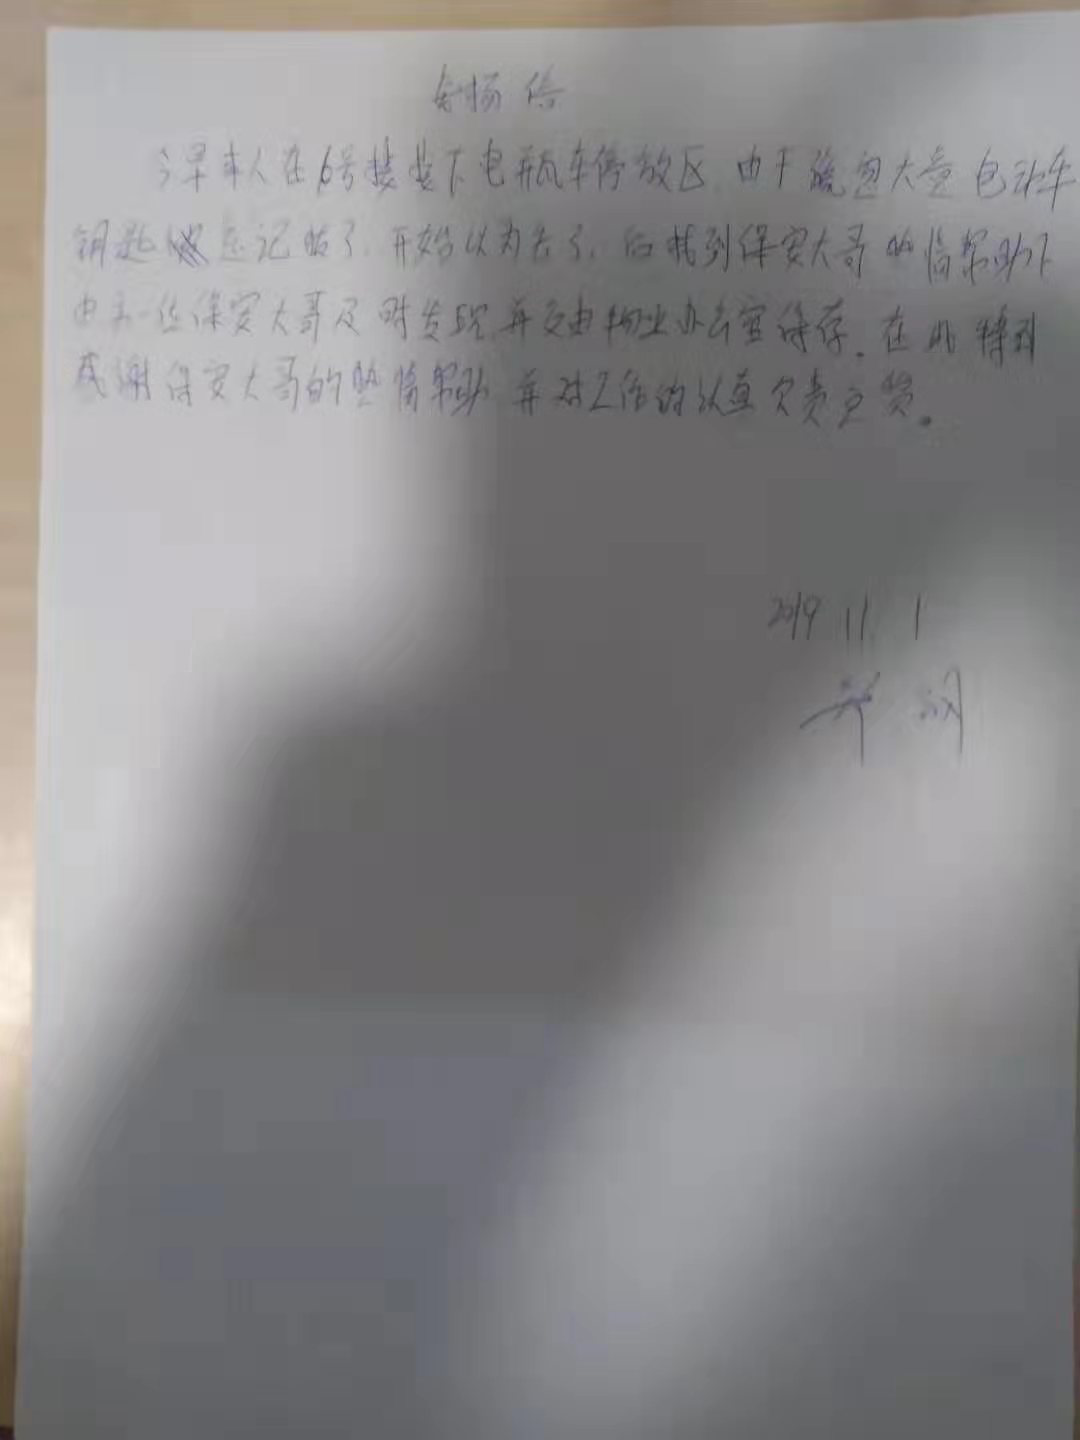 表扬信
今早本人在6号楼楼下电瓶车停放区,由于疏忽大意电动车
钥匙忘记拔了.开始以为丢了,后找到保安大哥热情帮助下
由另一位保安大哥及时发现,并交由物业办公室保存.在此特别
感谢保安大哥的热情帮助并对工作的认真负责
2019 11 1